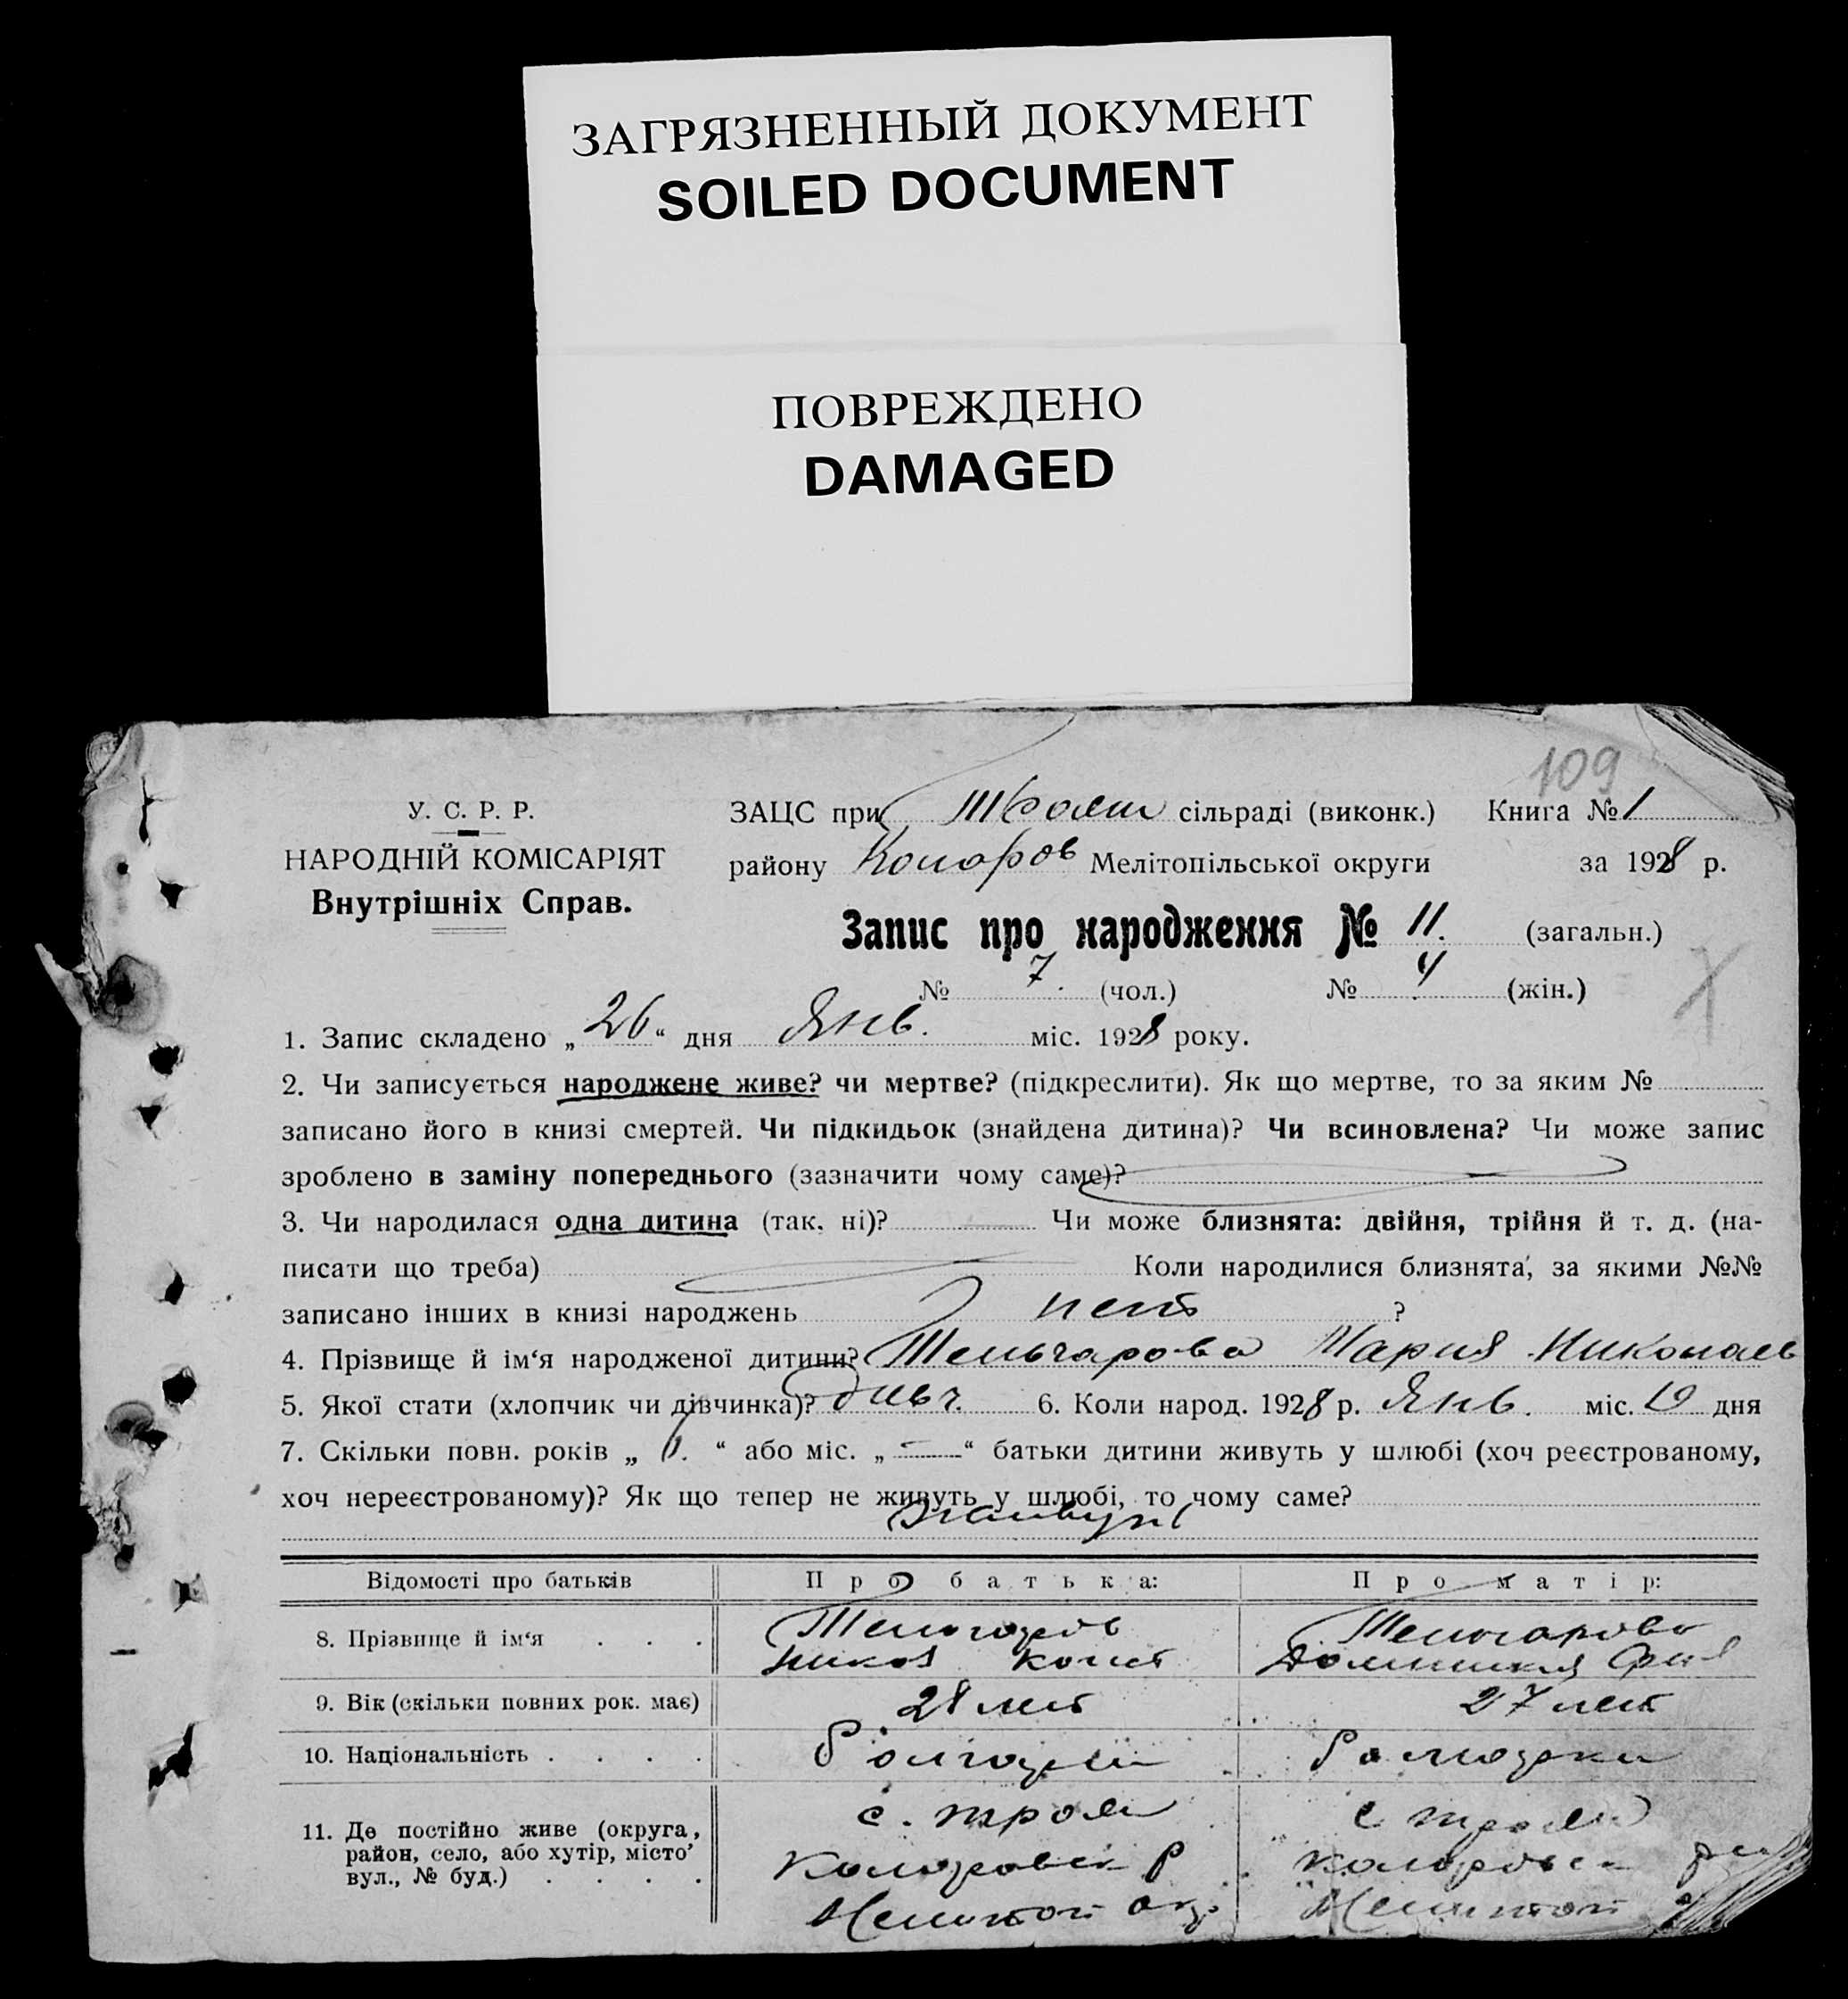 ЗАГРЯЗНЕННЫЙ ДОКУМЕНТ
SOILED DOCUMENT
ПОВРЕЖДЕНО
DAMAGED
109
У. С. Р. Р.
НАРОДНІЙ КОМІСАРІЯТ
Внутрішніх Справ.
ЗАЦС при Троян сільраді (виконк.) Книга № 1
району Коларов Мелітопільської округи за 1928 р.
Запис про народження № 11. (загальн.)
№ 7. (чол.) № 4 (жін.)
1. Запис складено „ 26 “ дня Янв. міс. 1928 року.
2. Чи записується народжене живе? чи мертве? (підкреслити). Як що мертве, то за яким №
записано його в книзі смертей. Чи підкидьок (знайдена дитина)? Чи всиновлена? Чи може запис
зроблено в заміну попереднього (зазначити чому саме)?
3. Чи народилася одна дитина (так, ні)? Чи може близнята: двійня, трійня й т. д. (на-
писати що треба) Коли народилися близнята, за якими №№
записано інших в книзі народжень нет ?
4. Прізвище й ім‘я народженої дитини? Мария Николаев
5. Якої стати (хлопчик чи дівчинка)? дивч. 6. Коли народ. 1928 р. Янв. міс. 10 дня
7. Скільки повн. років „ “ або міс. „ — “ батьки дитини живуть у шлюбі (хоч реєстрованому,
хоч нереєстрованому)? Як що тепер не живуть у шлюбі, то чому саме?
Живут
Відомості про батьків Про батька: Про матір:
8. Прізвище й ім‘я . . .
Никол Конст
9. Вік (скільки повних рок. має) 28 лет 27 лет
10. Національність . . . . Болгарин Болгарка
11. Де постійно живе (округа, с. Троян с Троян
район, село, або хутір, місто’ Коларовск р Коларовск
вул., № буд.) . . . . Мелитоп окр. Мелитоп